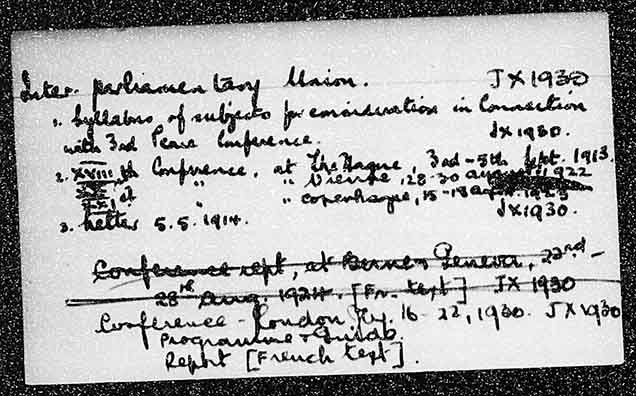 Inter-parliamentary Union. JX1930
1. Syllabus of subjects for consideration in Connection
with 3rd Peace Conference. JX1930.
2. XVIII th Conference, at The Hague, 3rd-5th Sept. 1913.
XX, at " " Vienna, 28-30 august 1922
XXI, " Copenhague, 15-18 aug. 1923
JX1930.
3. Letter 5.5.1914.
Conference rept, at Berne & Geneva, 22nd -
28th Aug. 1924. [Fr. text] JX 1930
Conference - London Jy. 16-22, 1930. JX1930
Programme & Guide
Report [French text].